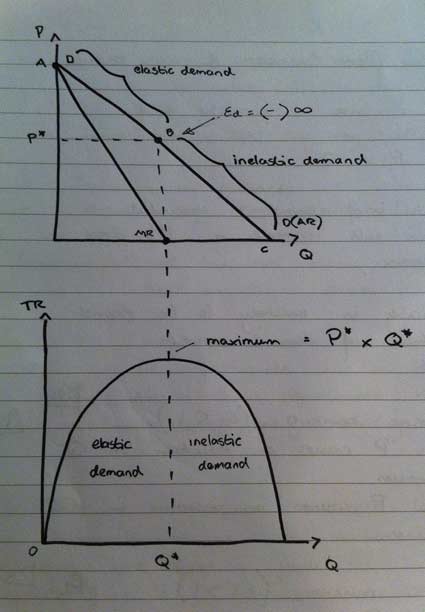 P
A D
elastic demand
Ed = (-) ∞
B
P*
inelastic demand
D(AR)
MR
C
Q
TR
maximum = P* x Q*
elastic demand
inelastic demand
O
Q*
Q